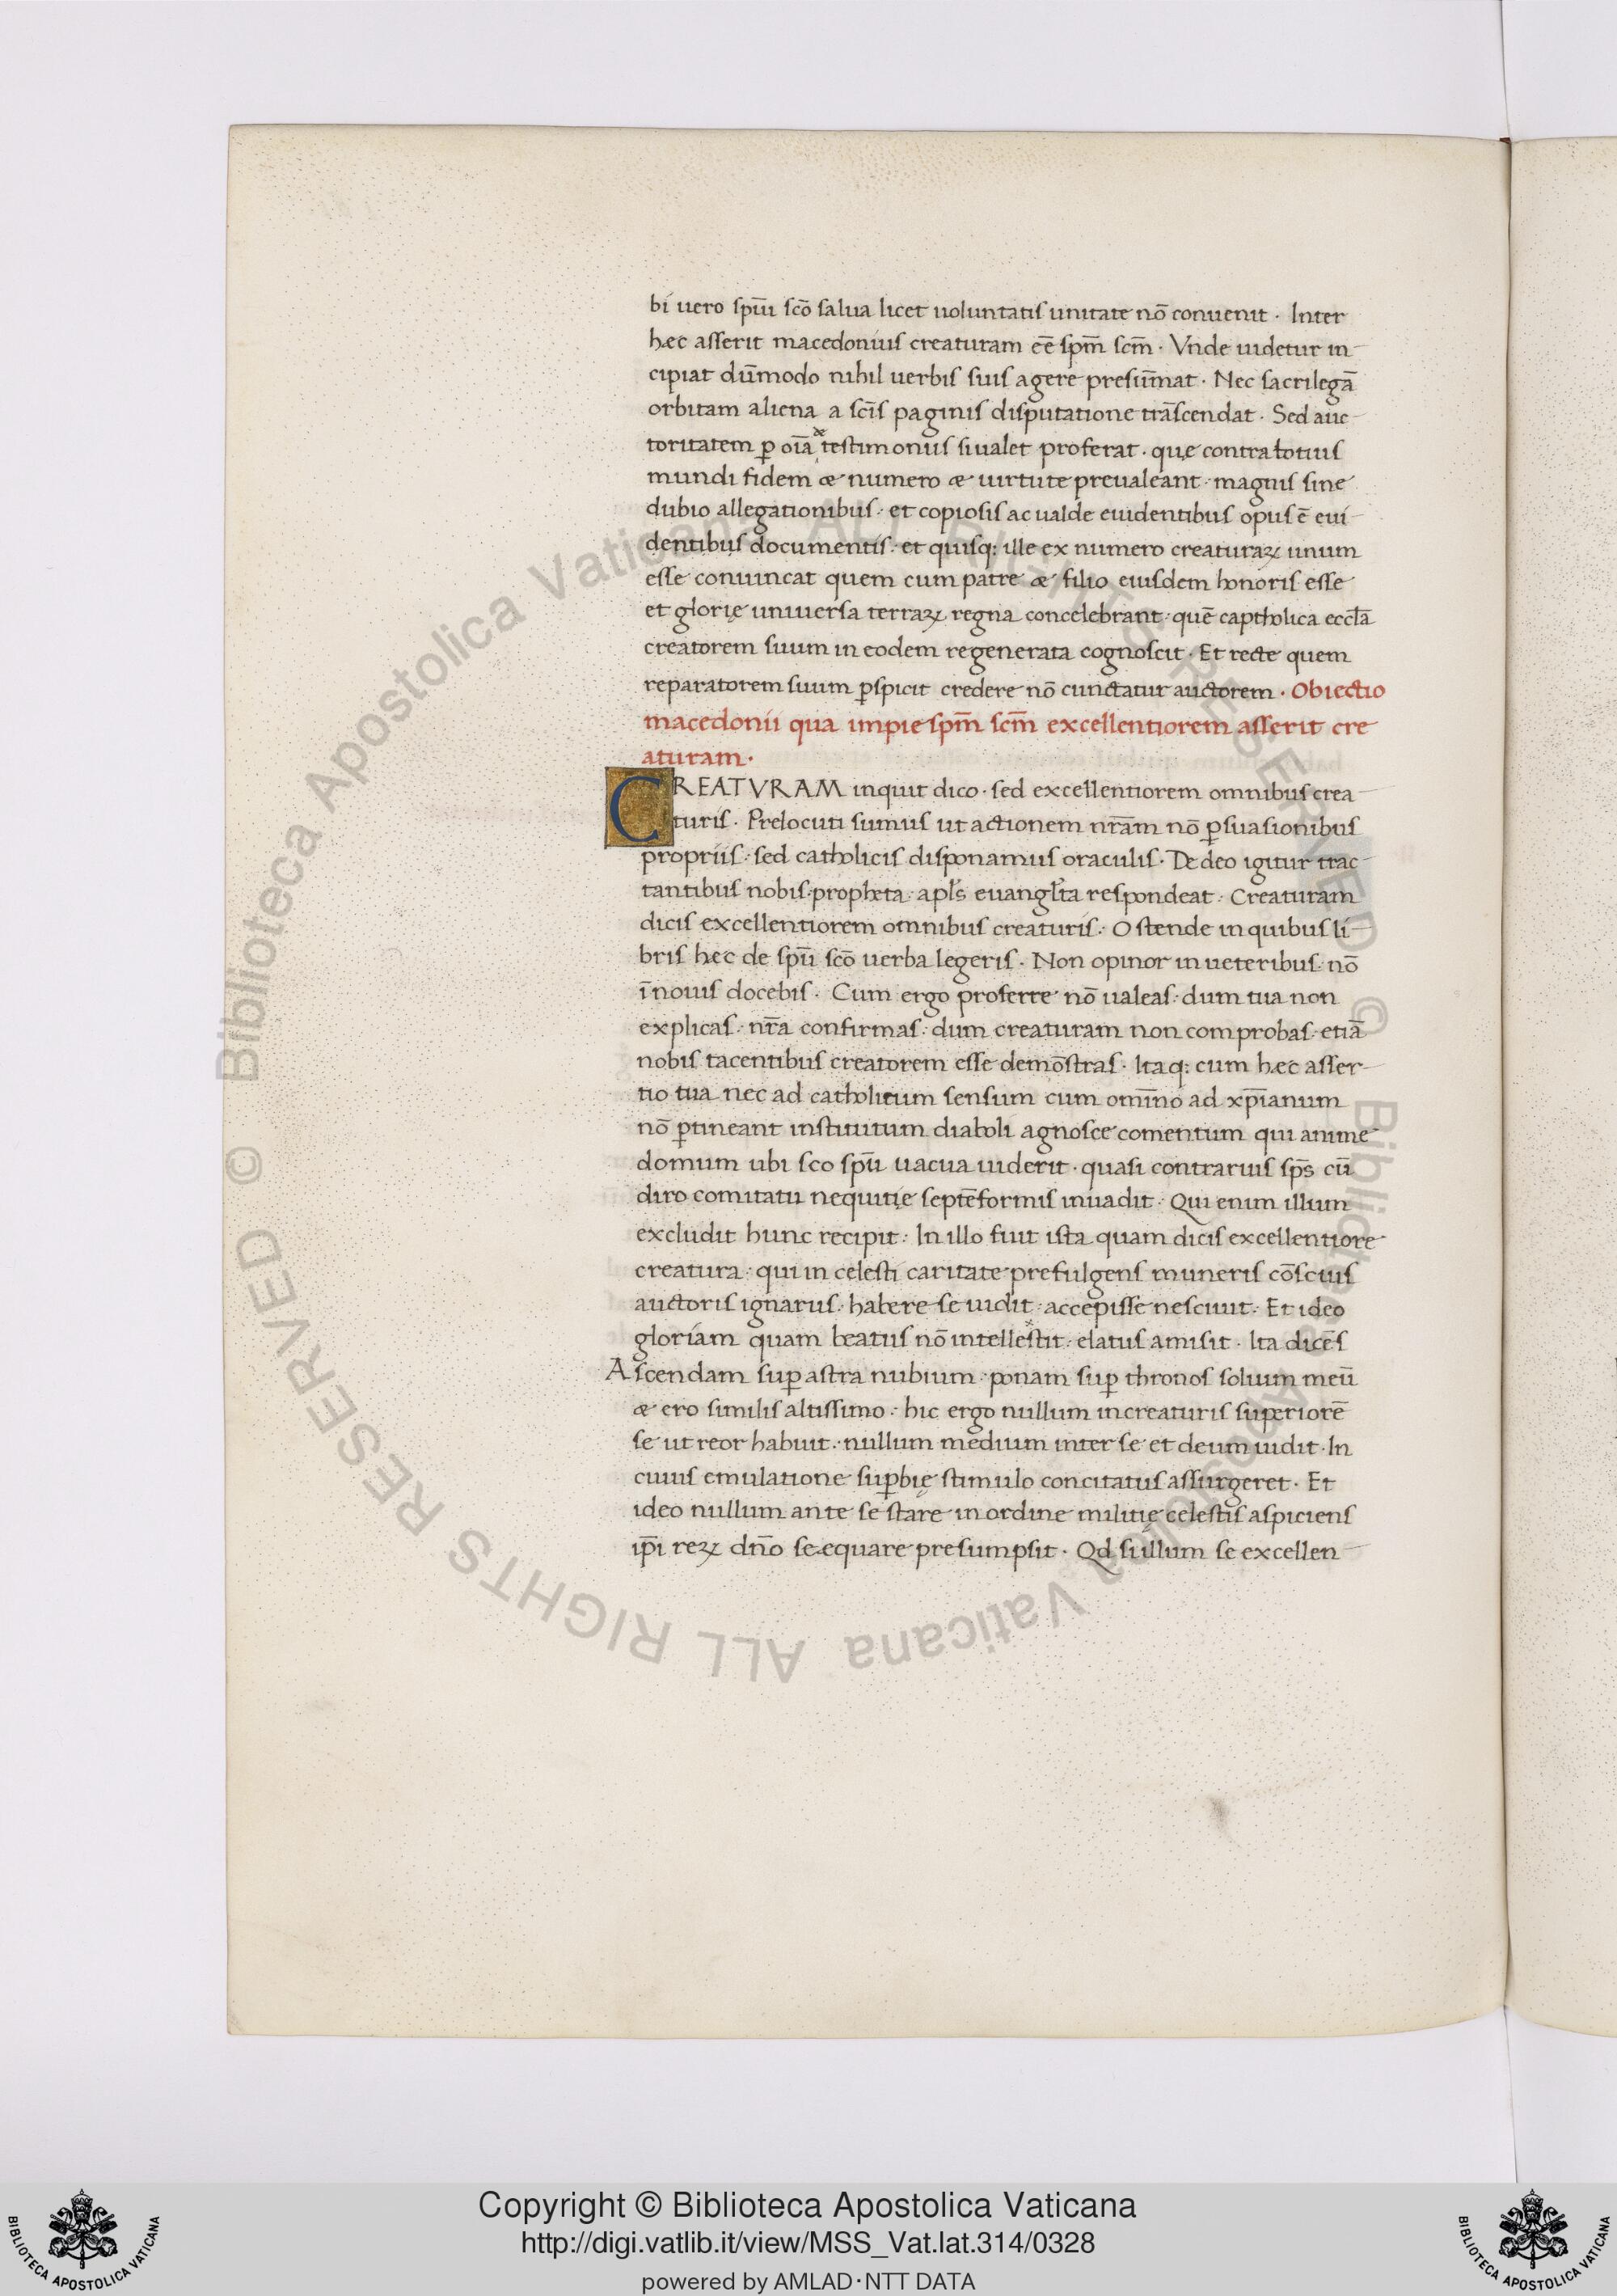 bi uero sp̄ui sc̄o salua licet uoluntatis unitate nō conuenit · Inter
hæc asserit macedonius creaturam eē sp̄m sc̄m · Vnde uidetur in
cipiat dum̄modo nihil uerbis suis agere presum̄at · Nec sacrilegā
orbitam aliena a sc̄is paginis disputatione trāscendat · Sed auc
toritatem p̲ oīa & testimoniis si ualet proferat · quę contra totius
mundi fidem & numero & uirtute preualeant · magnis sine
dubio allegationibus · et copiosis ac ualde euidentibus opus ē eui
dentibus documentis · et quisq: ille ex numero creaturaꝝ unum
esse conuincat quem cum patre & filio eiusdem honoris esse
et glorię uniuersa terraꝝ regna concelebrant · quē captholica eccl̄a
creatorem suum in eodem regenerata cognoscit · Et recte quem
reparatorem suum ꝑspicit credere nō cunctatur auctorem · Obiectio
macedonii qua impie sp̄m sc̄m excellentiorem asserit cre
aturam ·
CREATVRAM inquit dico · sed excellentiorem omnibus crea
turis · Prelocuti sumus ut actionem nr̄am nō ꝑsuasionibus
propriis · sed catholicis disponamus oraculis · De deo igitur trac
tantibus nobis · propheta · apl̄s euangl̄ta respondeat · Creaturam
dicis excellentiorem omnibus creaturis · Ostende in quibus li
bris hec de sp̄u sc̄o uerba legeris · Non opinor in ueteribus · nō
ī nouis docebis · Cum ergo proferre nō ualeas · dum tua non
explicas · nr̄a confirmas · dum creaturam non comprobas · etiā
nobis tacentibus creatorem esse demōstras · Itaq: cum hæc asser
tio tua nec ad catholicum sensum cum omīno ad xp̄ianum
nō ꝑtineant institutum diaboli agnosce comentum qui anime
domum ubi sco sp̄u uacua uiderit · quasi contrarius sp̄s cū
diro comitatu nequitię septēformis inuadit · Qui enim illum
excludit hunc recipit · In illo fuit ista quam dicis excellentiore
creatura · qui in celesti caritate prefulgens muneris cōscius
auctoris ignarus · habere se uidit · accepisse nesciuit · Et ideo
gloriam quam beatus nō intellestit · elatus amisit · Ita dicēs
Ascendam suꝑ astra nubium · ponam suꝑ thronos solium meū
& ero similis altissimo · hic ergo nullum in creaturis superiorē
se ut reor habuit · nullum medium inter se et deum uidit · In
cuius emulatione suꝑbię stimulo concitatus assurgeret · Et
ideo nullum ante se stare in ordine militię celestis aspiciens
ip̄i reꝝ dn̄o se equare presumpsit · Qd si illum se excellen
Copyright © Biblioteca Apostolica Vaticana
http://digi.vatlib.it/view/MSS_Vat.lat.314/0328
powered by AMLAD·NTT DATA
BIBLIOTECA APOSTOLICA VATICANA
BIBLIOTECA APOSTOLICA VATICANA
© Biblioteca Apostolica Vaticana ALL RIGHTS RESERVED
© Biblioteca Apostolica Vaticana ALL RIGHTS RESERVED